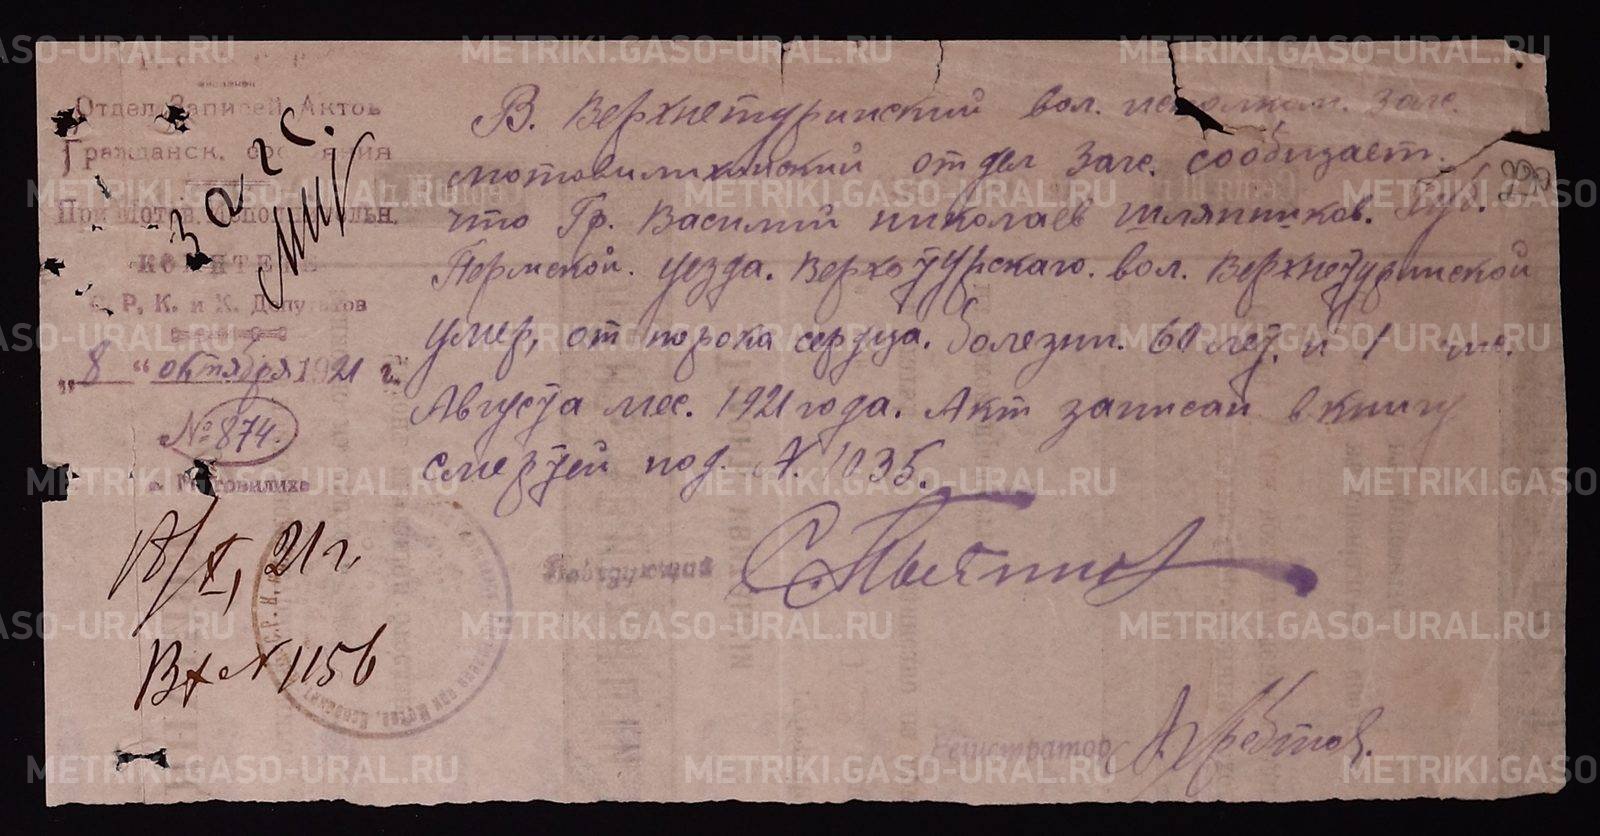 Отдел Записей Актов
Гражданск. состояния
При Мотов. Исполнительн.
КОМИТЕТЕ
С. Р. К. и К. Депутатов
„8“ октября 1921 г.
№ 874.
с. Мотовилиха
Загс
18/X, 21 г.
Вх № 1156
В. Верхнетуринский вол. исполком. Загс.
мотовилихинский отдел Загс. сообщает.
что Гр. Василий николаев Шляпников. Губ.
Пермской. уезда. Верхотурскаго. вол. Верхнетуринской
умер, от порока сердца. болезни. 60 лет. и 1 чис.
Августа мес. 1921 года. Акт записан в книгу
смертей под. №. 1035.
Заведующий
Регистратор
METRIKI.GASO-URAL.RU